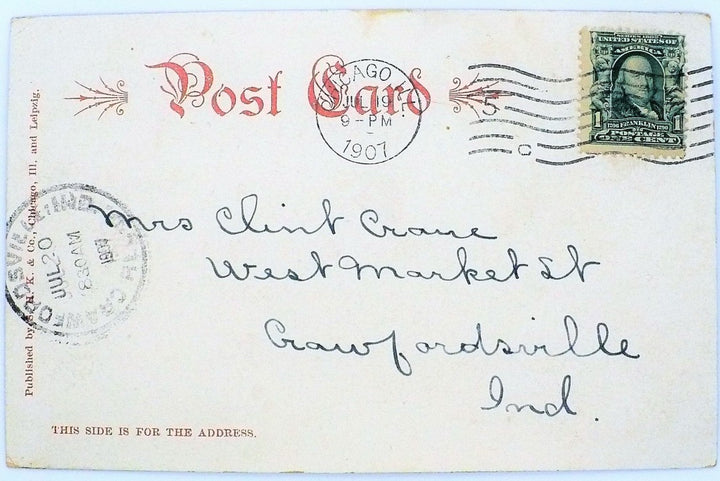 Post Card
CHICAGO, ILL.
JUL 19
9-PM
1907
5
C
SERIES 1902
UNITED STATES OF
AMERICA
1 FRANKLIN 1790
1
POSTAGE
ONE CENT
Mrs Clint Crane
West Market St
Crawfordsville
Ind.
CRAWFORDSVILLE, IND.
JUL 20
830AM
1907
Published by S. H. K. & Co., Chicago, Ill. and Leipzig.
THIS SIDE IS FOR THE ADDRESS.